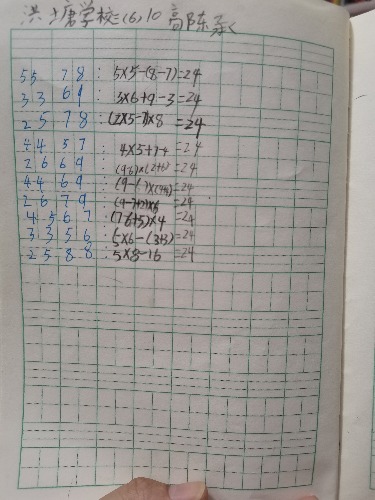 洪塘学校二(6)10高陈
5 5 7 8 : 5×5-(8-7)=24
3 3 6 9 : 3×6+9-3=24
2 5 7 8 : (2×5-7)×8=24
4 4 5 7 : 4×5+ =24
2 6 6 9 : (9-6)×(2+6)=24
4 4 6 9 : =24
2 6 7 9 : (9-7+2)×6=24
4 5 6 7 : (7-6+5)×4=24
3 3 5 6 : 5×6-(3+3)=24
2 5 8 8 : 5×8-16=24